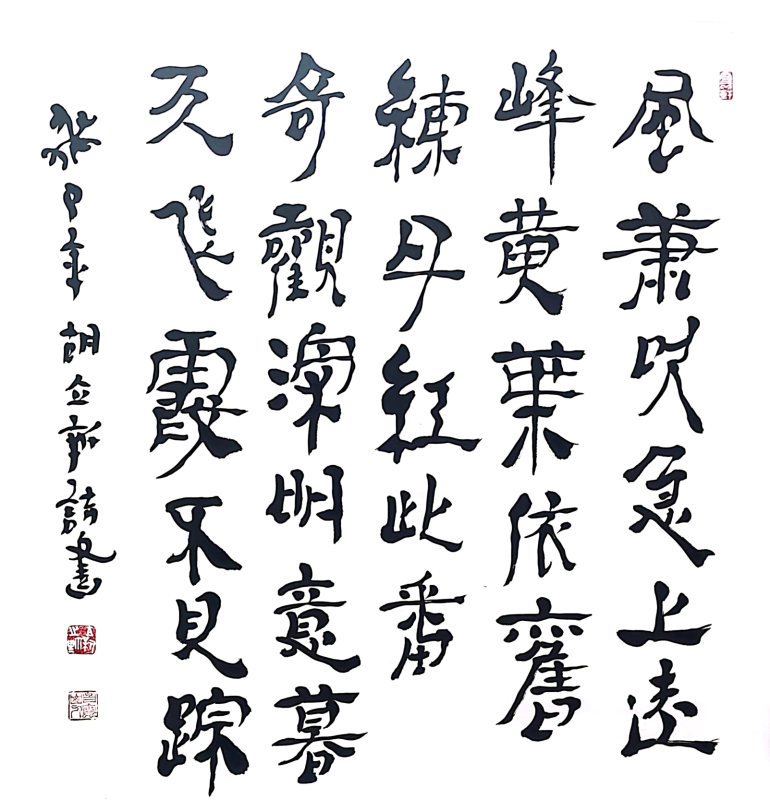 風蕭吹急上遠
峰黄葉依舊
練丹紅此番
奇觀深明意暮
天飛霞不見踪
年胡立新詩書